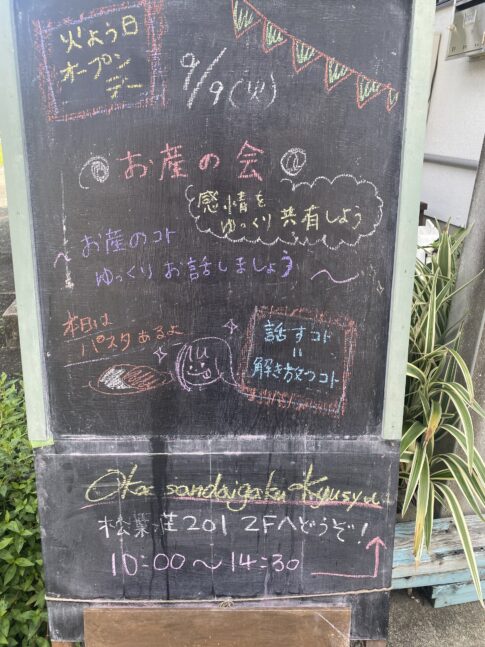 火よう日
オープン
デー
9/9(火)
お産の会
感情を
ゆっくり共有しよう
お産のコト
ゆっくりお話しましょう～
本日は
パスタあるよ
話すコト
=
解き放つコト
Okasandaigaku Kyusyu
松葉荘201 2Fへどうぞ!
10:00～14:30